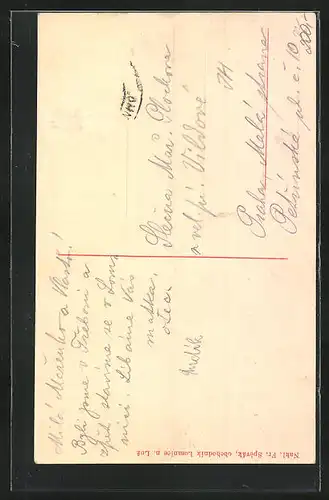 Milá Mařenko a Vlasto!
Byli jsme v Třeboni a
zpět stavíme se v Lom
nici. Líbáme Vás
matka,
otec.
Slečna Mař.
u vel. pí. Vildové
Praha, Malá strana
Petřínská ul. č. 10
Nakl. Fr. Spirák, obchodník Lomnice n. Luž